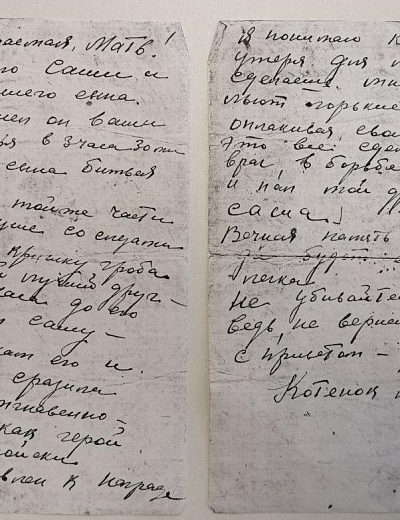 аемая, Мать!
о Саши и
шего сына.
ел он ваши
я в 3 часа 30 ми
сына битвая
той же части
уже со слезами
крышку гроба
й лучший друг –
вам до его
саму –
ам его и
сразила
гновенно –
как герой
ойски
влен к награде
я понимаю к
утеря для м
сделаешь ми
льют горькие
оплакивая, сво
Это всё сдел
враг в борьбе
и пал мой др
саша.
Вечная память
будет
легка
не убивайте
ведь не верне
с приветом –
Котенок